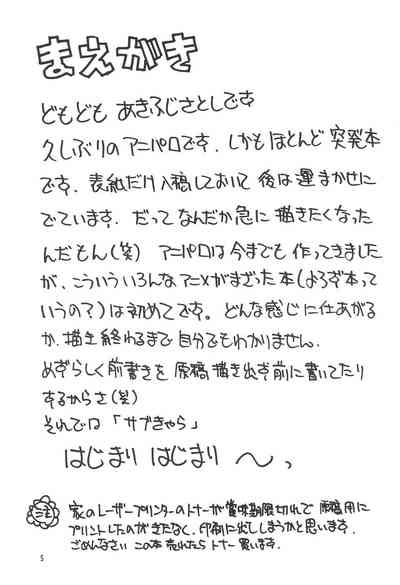 まえがき
どもども あきふじさとしです
久しぶりのアニパロです．しかもほとんど 突発本
です．表紙だけ入稿しておいて 後は運まかせに
でています．だってなんだか急に 描きたくなった
んだもん(笑) アニパロは今までも作ってきました
が、こういういろんなアニメがまざった本(よろず本って
いうの?)は初めてです。どんな感じに仕あがる
か、描き終わるまで 自分でもわかりません．
めずらしく前書きを 原稿描き出す前に書いてたり
するからさ(笑)
それでは「サブきゃら」
はじまり はじまり 〜っ
家のレーザープリンターのトナーが賞味期限切れで 原稿用に
プリントしたのがきたなく、印刷に出てしまうかと思います．
ごめんなさい この本 売れたら トナー 買います．
5